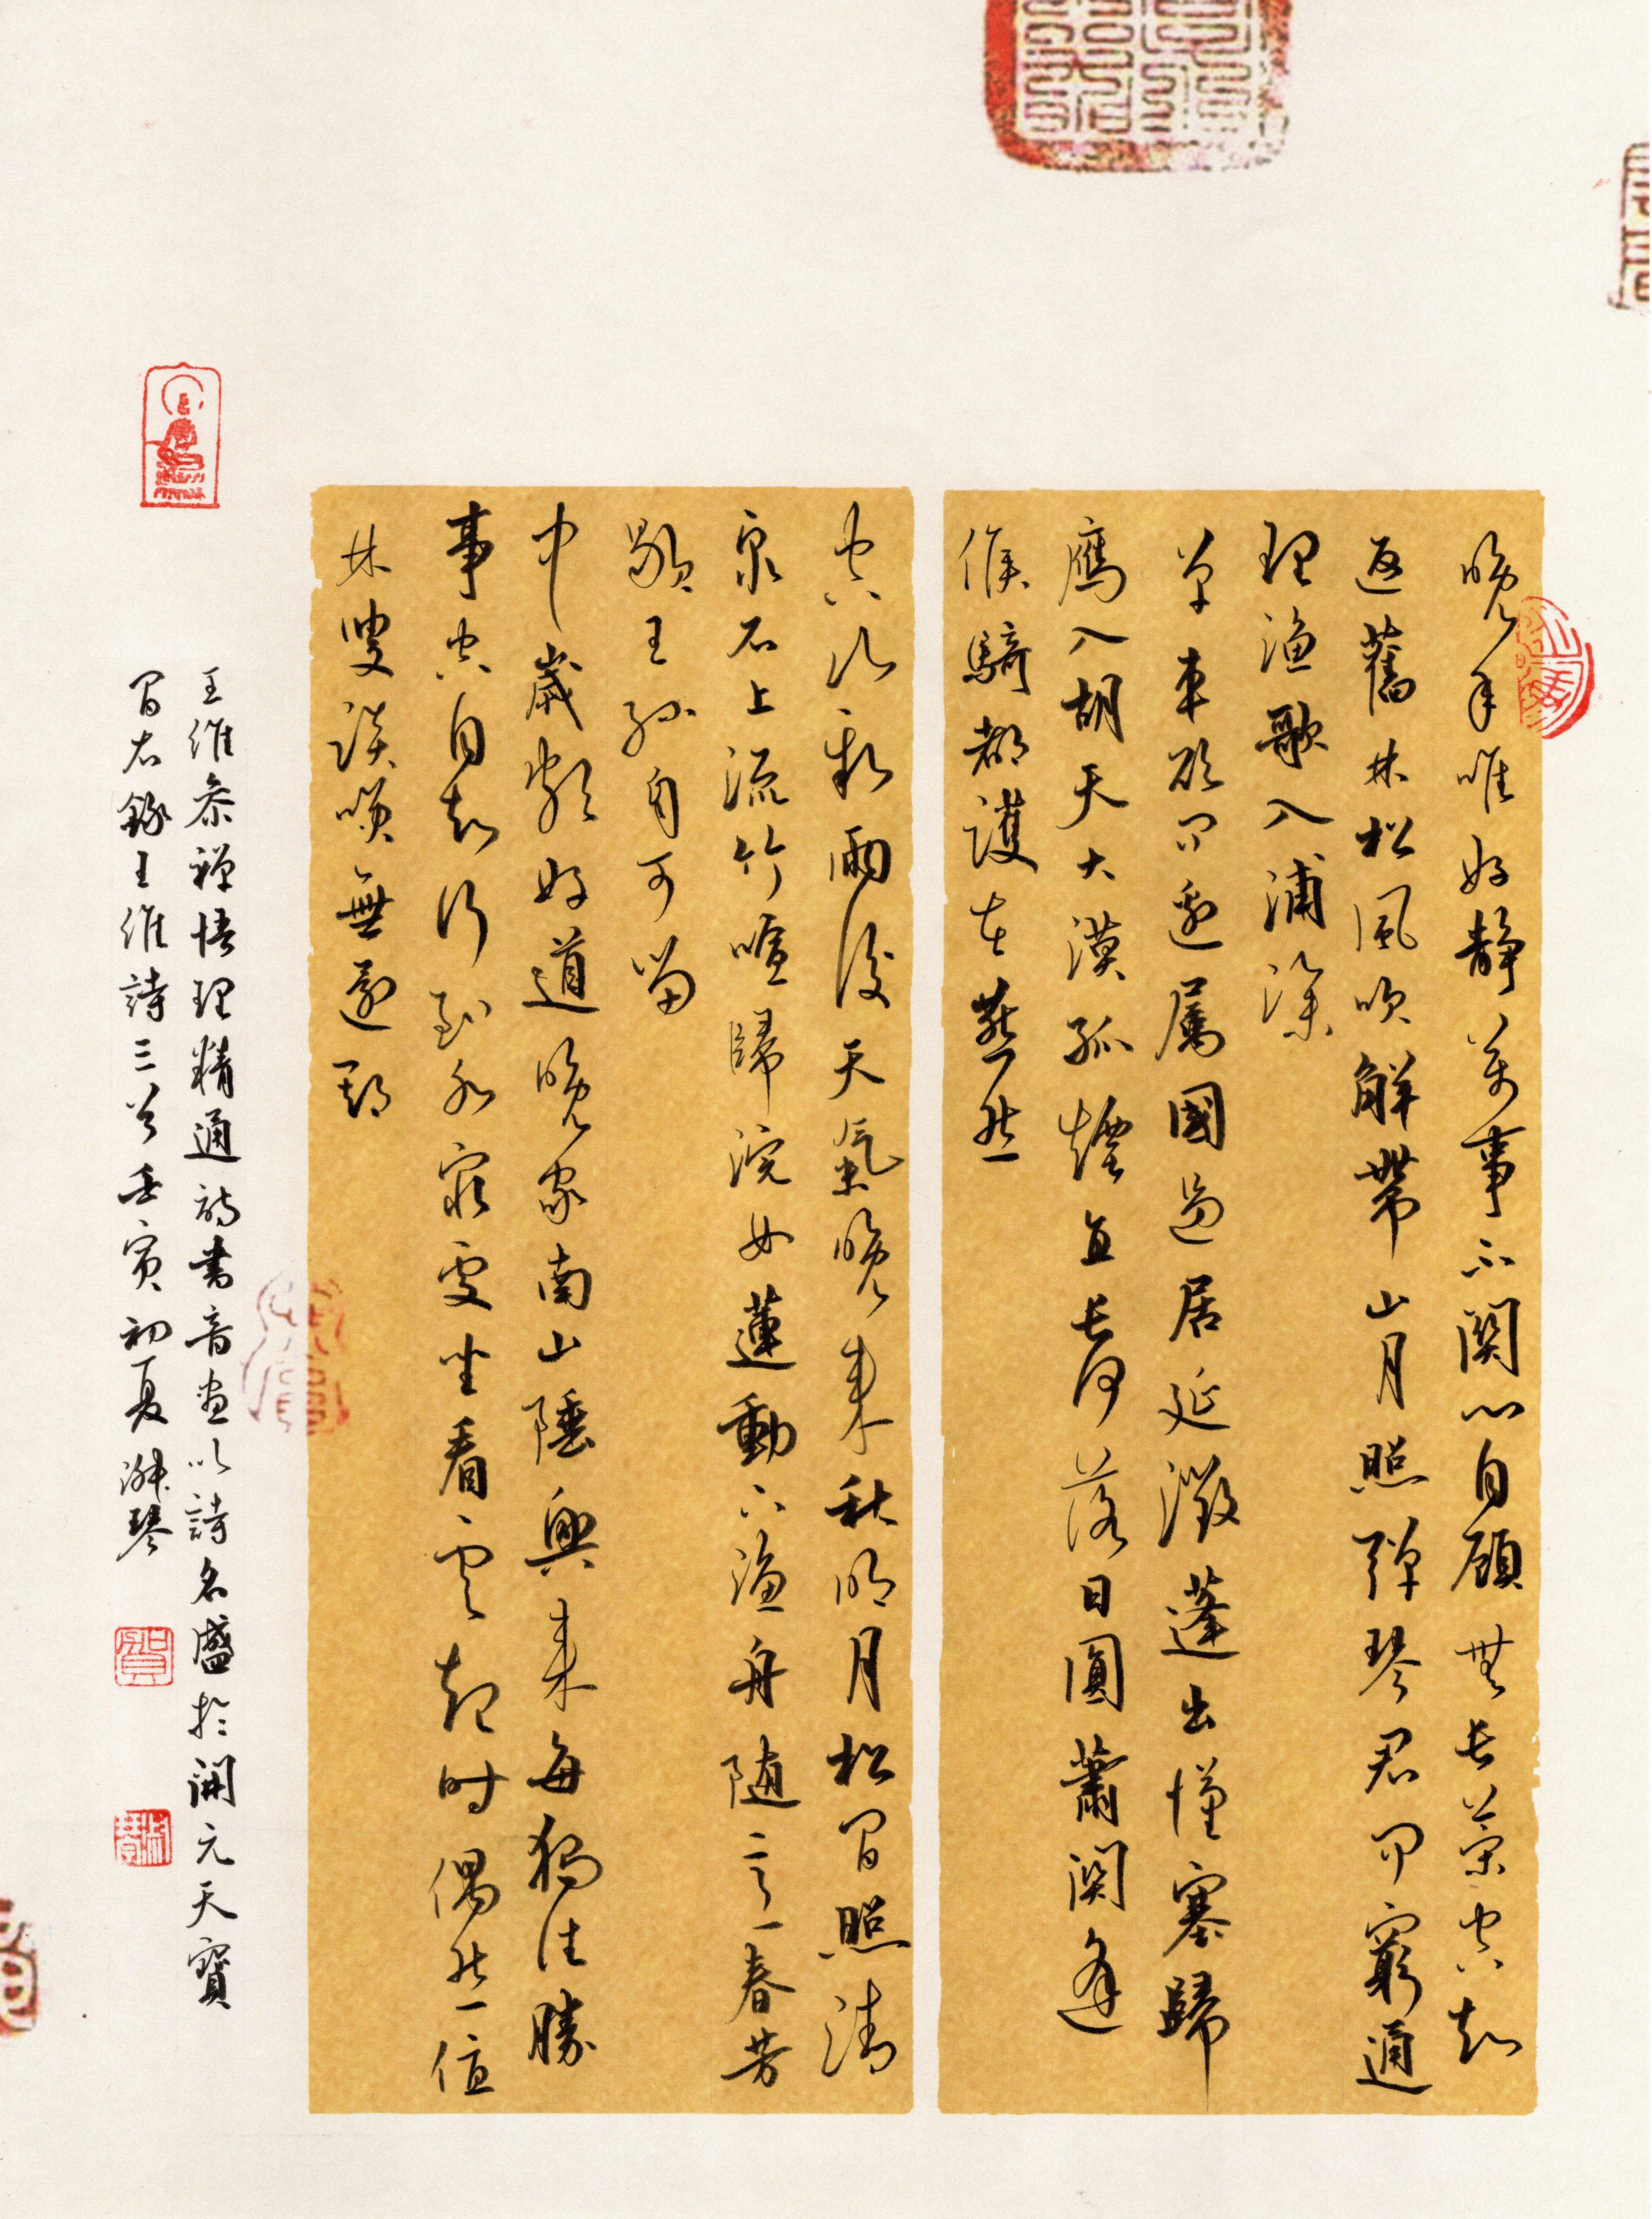 晚年唯好靜萬事不關心自顧無長策空知
返舊林松風吹解帶山月照彈琴君問窮通
理漁歌入浦深
單車欲問邊屬國過居延征蓬出漢塞歸
雁入胡天大漠孤煙直長河落日圓蕭關逢
候騎都護在燕然
空山新雨後天氣晚來秋明月松間照清
泉石上流竹喧歸浣女蓮動下漁舟隨意春芳
歇王孫自可留
中歲頗好道晚家南山陲興來每獨往勝
事空自知行到水窮處坐看雲起時偶然值
林叟談笑無還期
王維參禪悟理精通詩書音畫以詩名盛於開元天寶
間右錄王維詩三首壬寅初夏淑琴
賀
淑琴